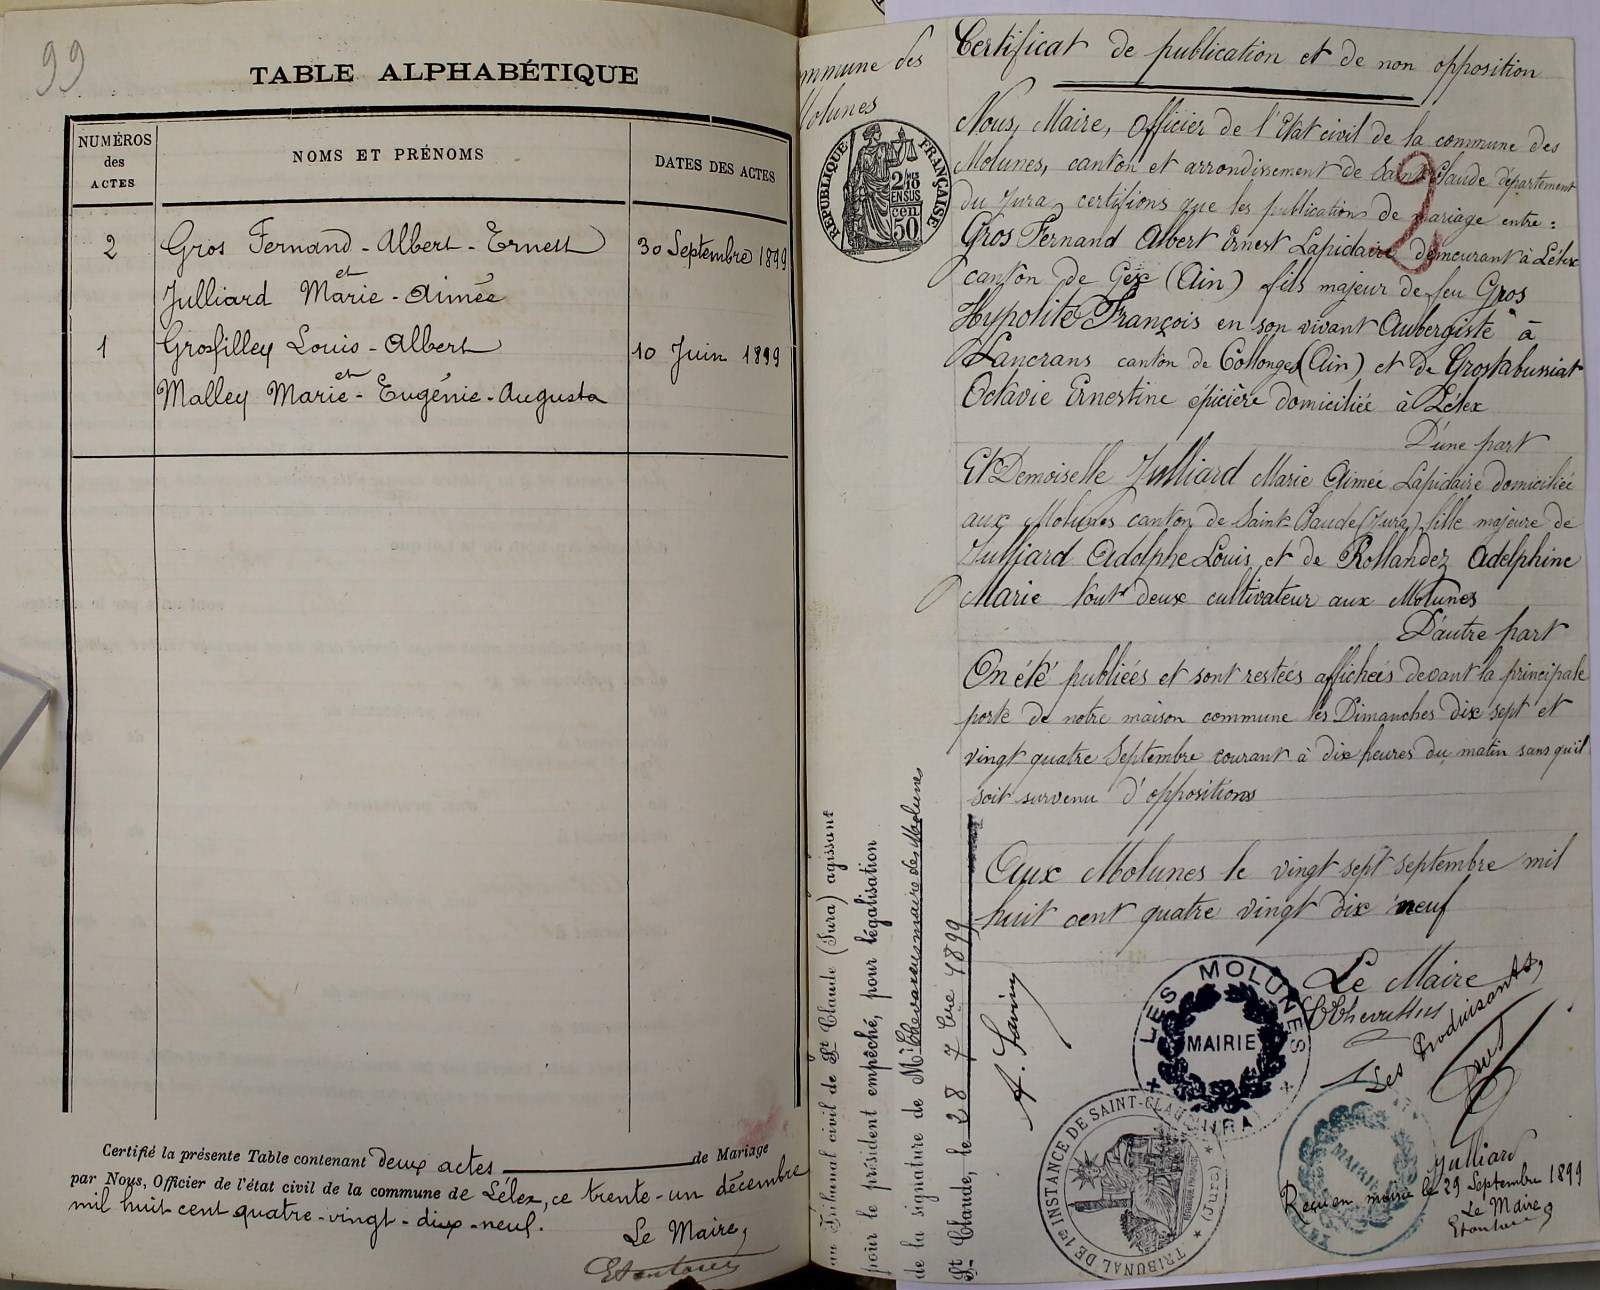 99
TABLE ALPHABÉTIQUE
NUMÉROS des ACTES
NOMS ET PRÉNOMS
DATES DES ACTES
2 Gros Fernand-Albert-Ernest 30 Septembre 1899
et
Julliard Marie-Aimée
1 Grosfilley Louis-Albert 10 Juin 1899
et
Malley Marie-Eugénie-Augusta
Certifié la présente Table contenant deux actes de Mariage
par Nous, Officier de l'état civil de la commune de Lélex, ce trente-un décembre
mil huit cent quatre-vingt-dix-neuf.
Le Maire,
mmune des
Molunes
RÉPUBLIQUE FRANÇAISE
2/10
EN SUS
50 cen
Certificat de publication et de non opposition
2
Nous, Maire, Officier de l'Etat civil de la commune des
Molunes, canton et arrondissement de Saint-Claude département
du Jura, certifions que les publications de mariage entre :
Gros Fernand Albert Ernest Lapidaire demeurant à Lélex
canton de Gex (Ain) fils majeur de feu Gros
Hypolite François en son vivant Aubergiste à
Lancrans canton de Collonges (Ain) et de Grostabussiat
Octavie Ernestine épicière domiciliée à Lélex
D'une part
Et Demoiselle Julliard Marie Aimée Lapidaire domiciliée
aux Molunes canton de Saint-Claude (Jura) fille majeure de
Julliard Adolphe Louis et de Rollandez Adelphine
Marie tout deux cultivateur aux Molunes
D'autre part
On été publiées et sont restées affichées devant la principale
porte de notre maison commune les Dimanches dix sept et
vingt quatre Septembre courant à dix heures du matin sans qu'il
soit survenu d'oppositions
Aux Molunes le vingt sept septembre mil
huit cent quatre vingt dix neuf
Le Maire
Les Produisants,
Gros
Julliard
Reçu en mairie le 29 Septembre 1899
Le Maire
LES MOLUNES
MAIRIE
JURA
TRIBUNAL DE 1re INSTANCE DE SAINT-CLAUDE (JURA)
MAIRIE
au Tribunal civil de St Claude (Jura) agissant
pour le président empêché, pour légalisation
de la signature de Mr Chevassus maire des Molunes
St Claude, le 28 7bre 1899